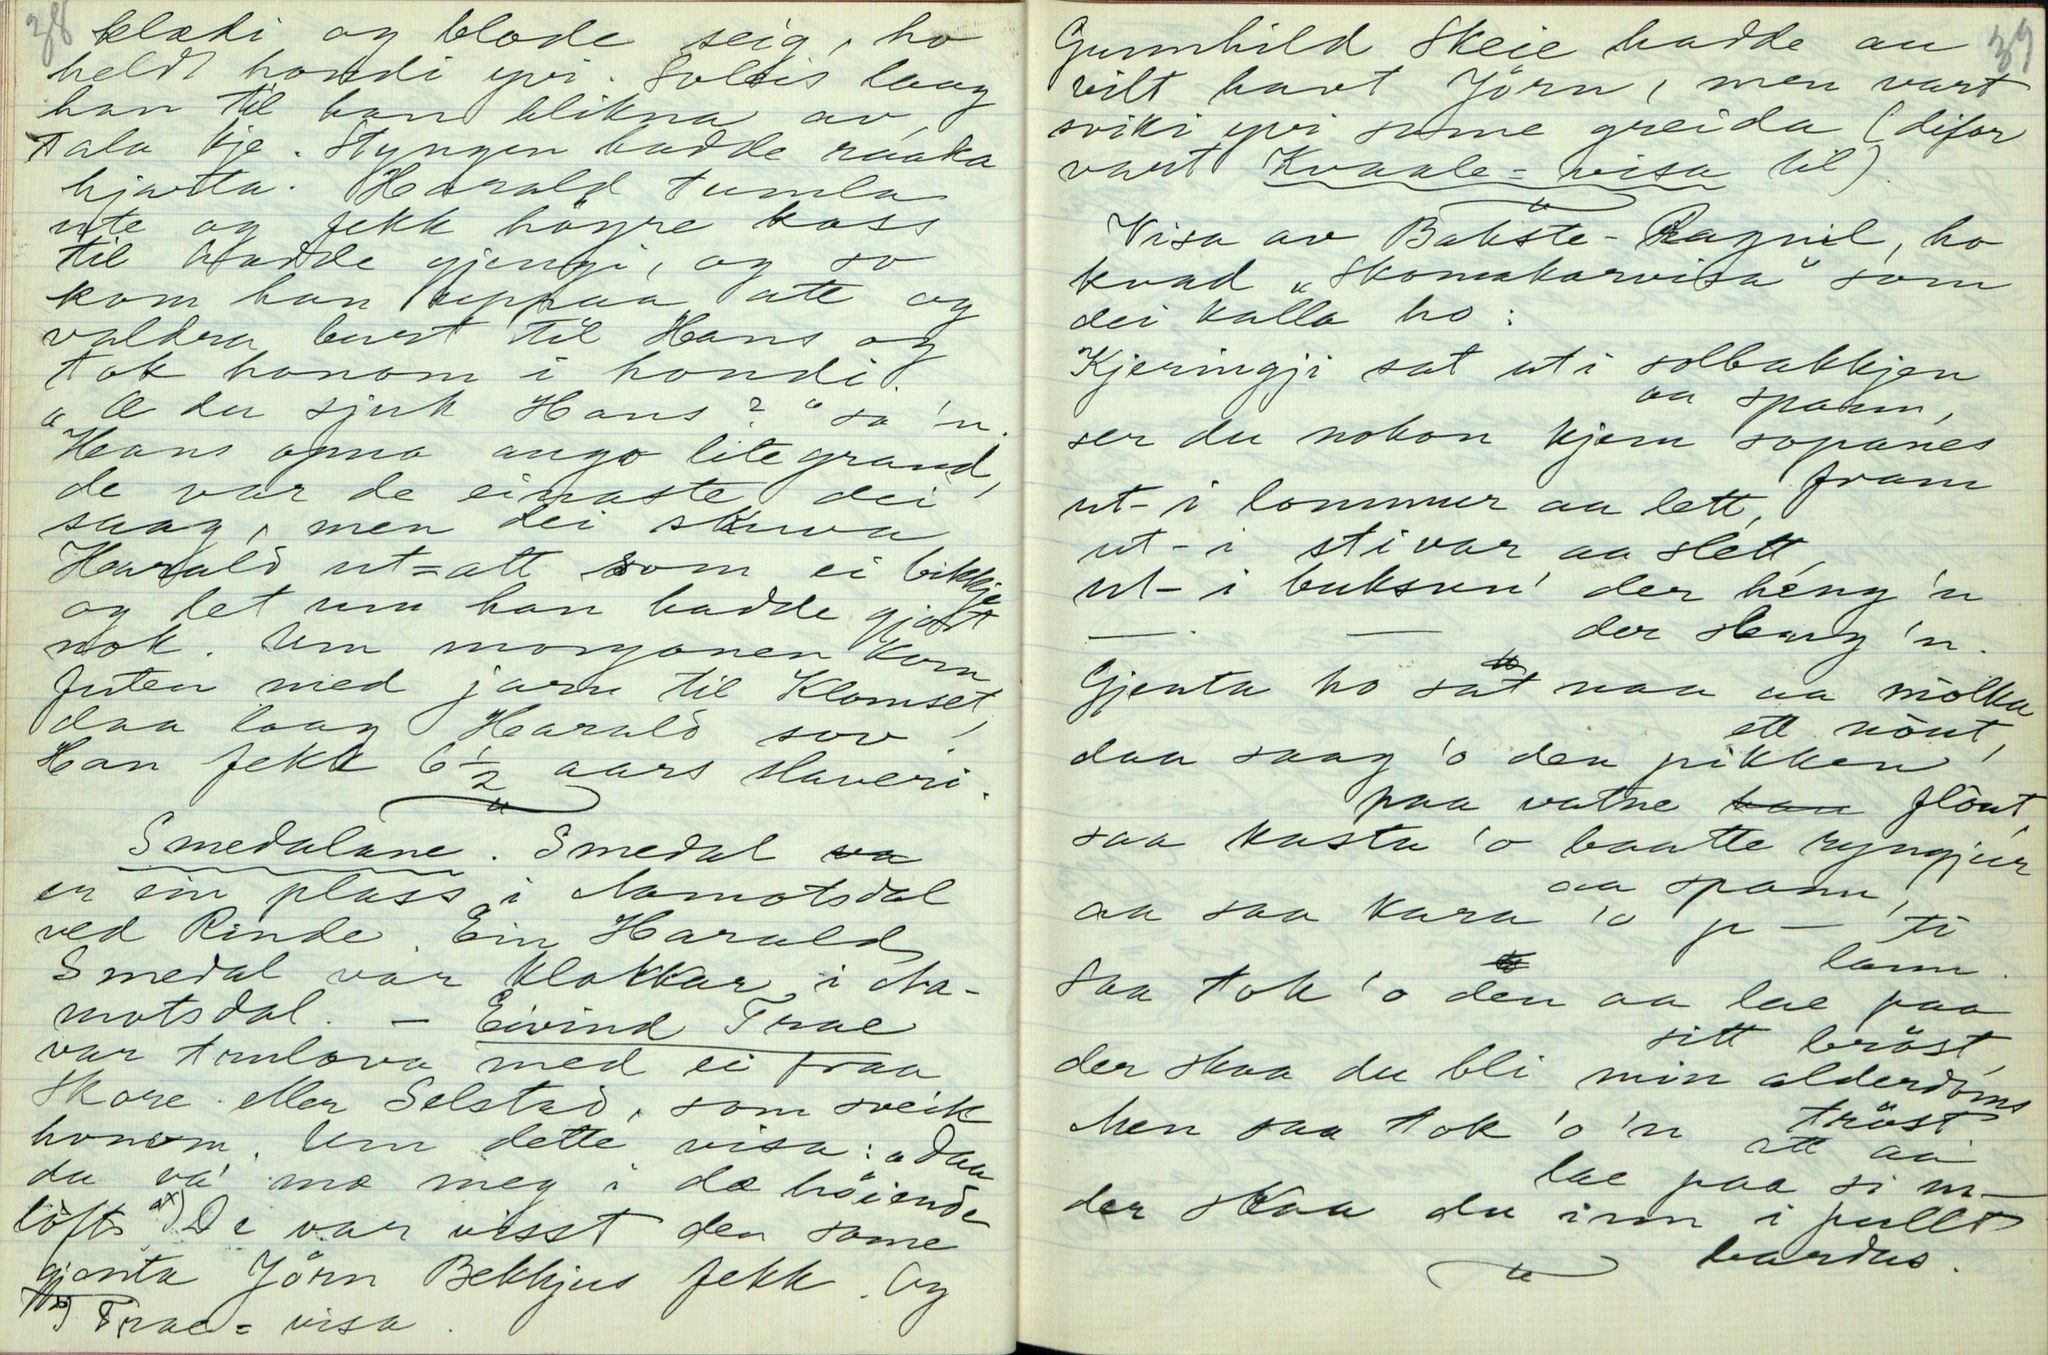 38
klædi og blødde seig, ho
heldt hondi yvi. Soleis laag
han til han blikna av,
tala kje. Styngen hadde raaka
hjarta. Harald tumla
ute og fekk høgre kass
til Hadde gjengi, og so
kom han uppaa att og
valdra burt til Hans og
tok honom i hondi.
"Æ du sjuk Hans?" sa 'n.
Hans opna augo lite grand,
de var de einaste dei
saag, men dei skuva
Harald ut=att som ei bikkje
og let um han hadde gjort
nok. Um morgonen kom
futen med jarn til Klomset,
daa laag Harald sov!
Han fekk 6 1/2 aars slaveri.
Smedalane. Smedal va
er ein plass i Aamotsdal
ved Rinde. Ein Harald
Smedal var klokkar i Aa-
motsdal. – Eivind Trae
var trulova med ei fraa
Skore eller Selstad, som sveik
honom. Um dette visa: "Daa
du va' mæ meg i dæ høiende
løft x) De var visst den same
gjenta Jörn Bekkjus fekk. Og
x) Trae=visa.
39
Gunnhild Skeie hadde au
vilt havt Jörn, men vart
sviki yvi same greida (difor
vart Kvaale=visa til).
Visa av Bakste-Ragnil, ho
kvad „Skomakarvisa" som
dei kalla ho:
Kjeringji sat ut i solbakkjen
aa spann,
ser du nokon kjem sopanes
fram
ut-i lommur aa lett,
ut-i stivar aa slett,
ut-i buksun' der heng 'n
— — der sleng 'n.
Gjenta ho sat naa aa mölka
ett nöut,
daa saag 'o den pikken
paa vatne flöut,
saa kasta 'o baatte ryngjur
aa spann,
aa saa kara 'o p — ti
lann.
Saa tok 'o den aa lae paa
sitt bröst,
der skaa du bli min alderdoms
tröst
Men saa tok 'o 'n att aa
lae paa si m—
der skaa du inn i pullt
bardus.